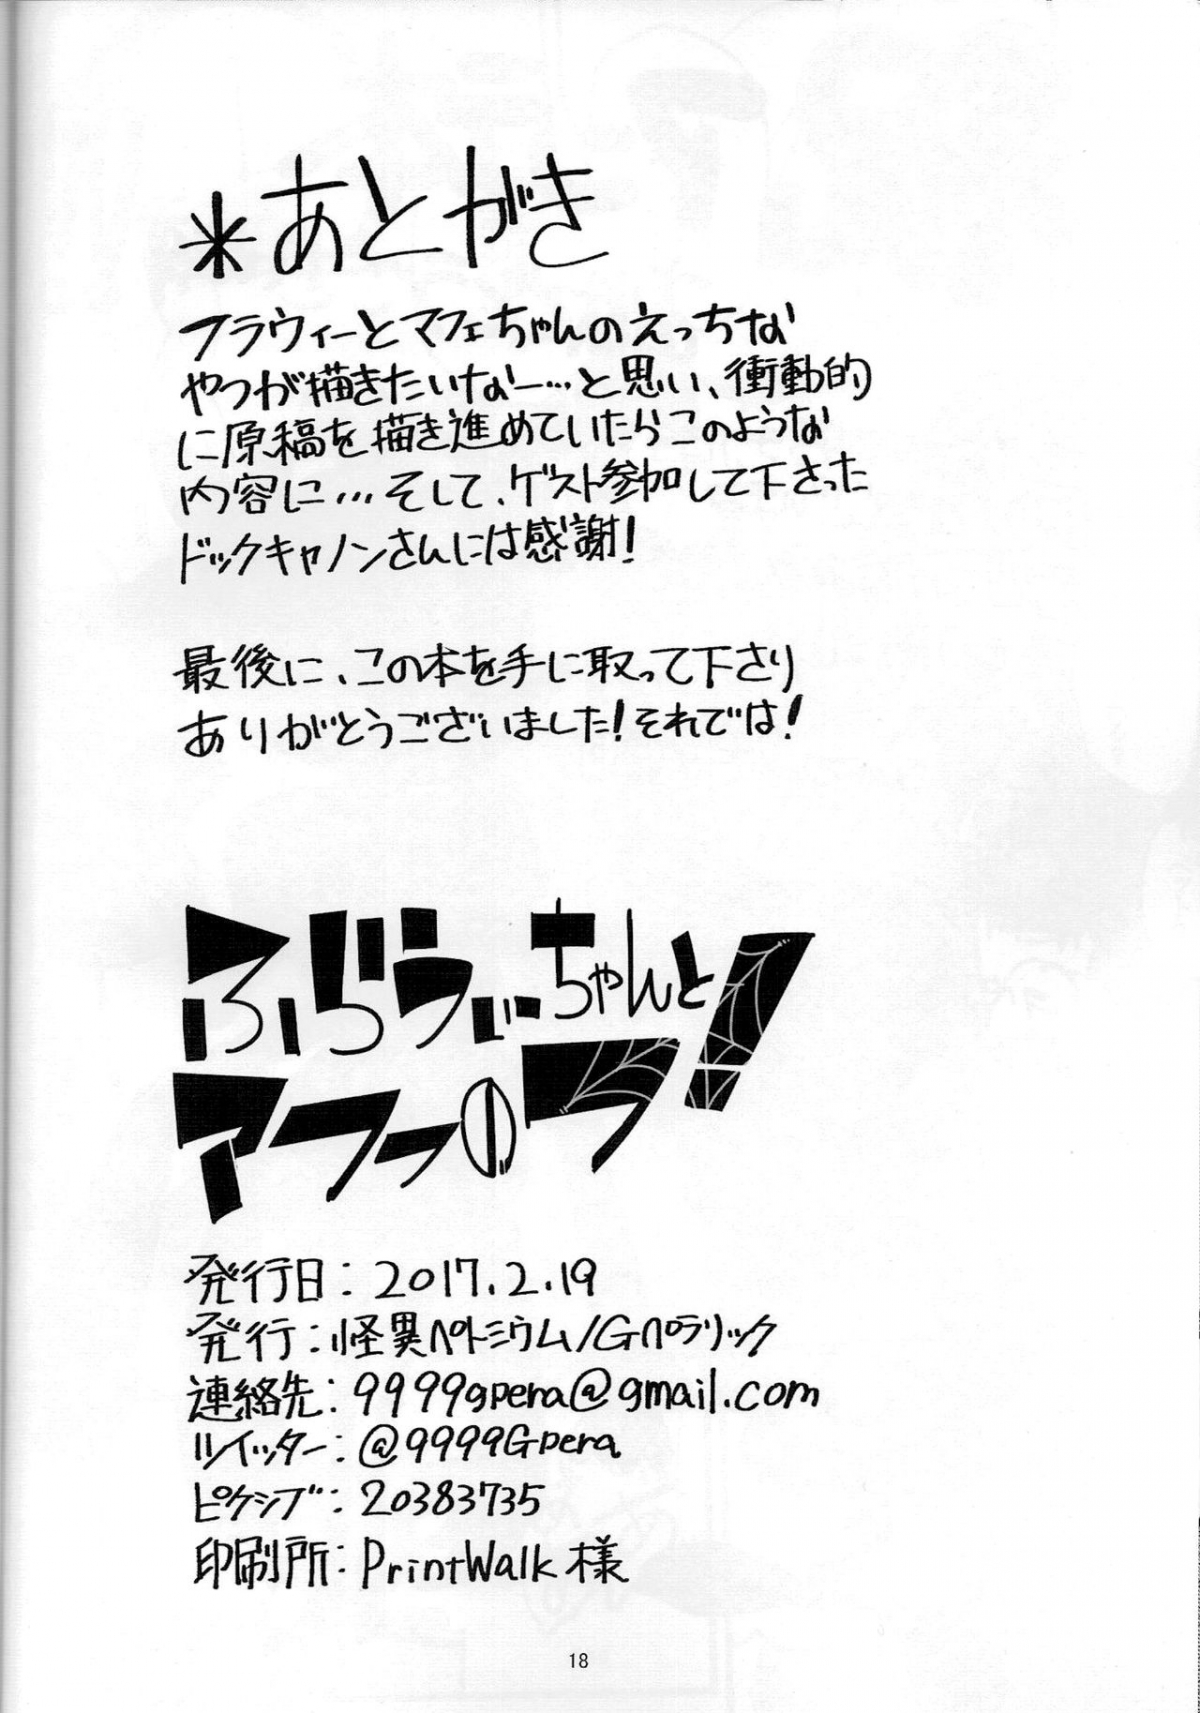 *あとがき
フラウィーとマフェちゃんのえっちな
やつが描きたいなー…と思い、衝動的
に原稿を描き進めていたらこのような
内容に…そして、ゲスト参加して下さった
ドックキャノンさんには感謝!
最後に、この本を手に取って下さり
ありがとうございました!それでは!
ふらうぃーちゃんと
アフフのフ!
発行日:2017.2.19
発行:怪異ペトミウム/Gペラリック
連絡先:9999gpera@gmail.com
ツイッター:@9999Gpera
ピクシブ:20383735
印刷所:PrintWalk様
18